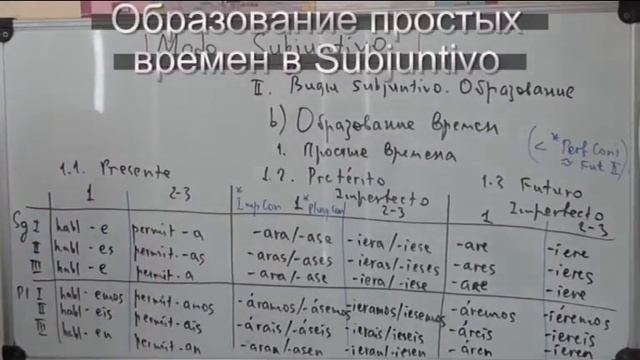 Образование простых
времен в Subjuntivo
Modo Subjuntivo
II. Виды Subjuntivo. Образование
b) Образование времен
1. Простые времена
1.1. Presente
1.2. Pretérito Imperfecto
1.3 Futuro Imperfecto
1 2-3 1 2-3 1 2-3
Sg I habl-e permit-a -ara/-ase -iera/-iese -are -iere
II habl-es permit-as -aras/-ases -ieras/-ieses -ares -ieres
III habl-e permit-a -ara/-ase -iera/-iese -are -iere
Pl I habl-emos permit-amos -áramos/-ásemos -ieramos/iesemos -áremos -ieremos
II habl-eis permit-ais -árais/-áseis -ierais/ieseis -áreis -iereis
III habl-en permit-an -aran/-asen -ieran/-iesen -áren -ieren